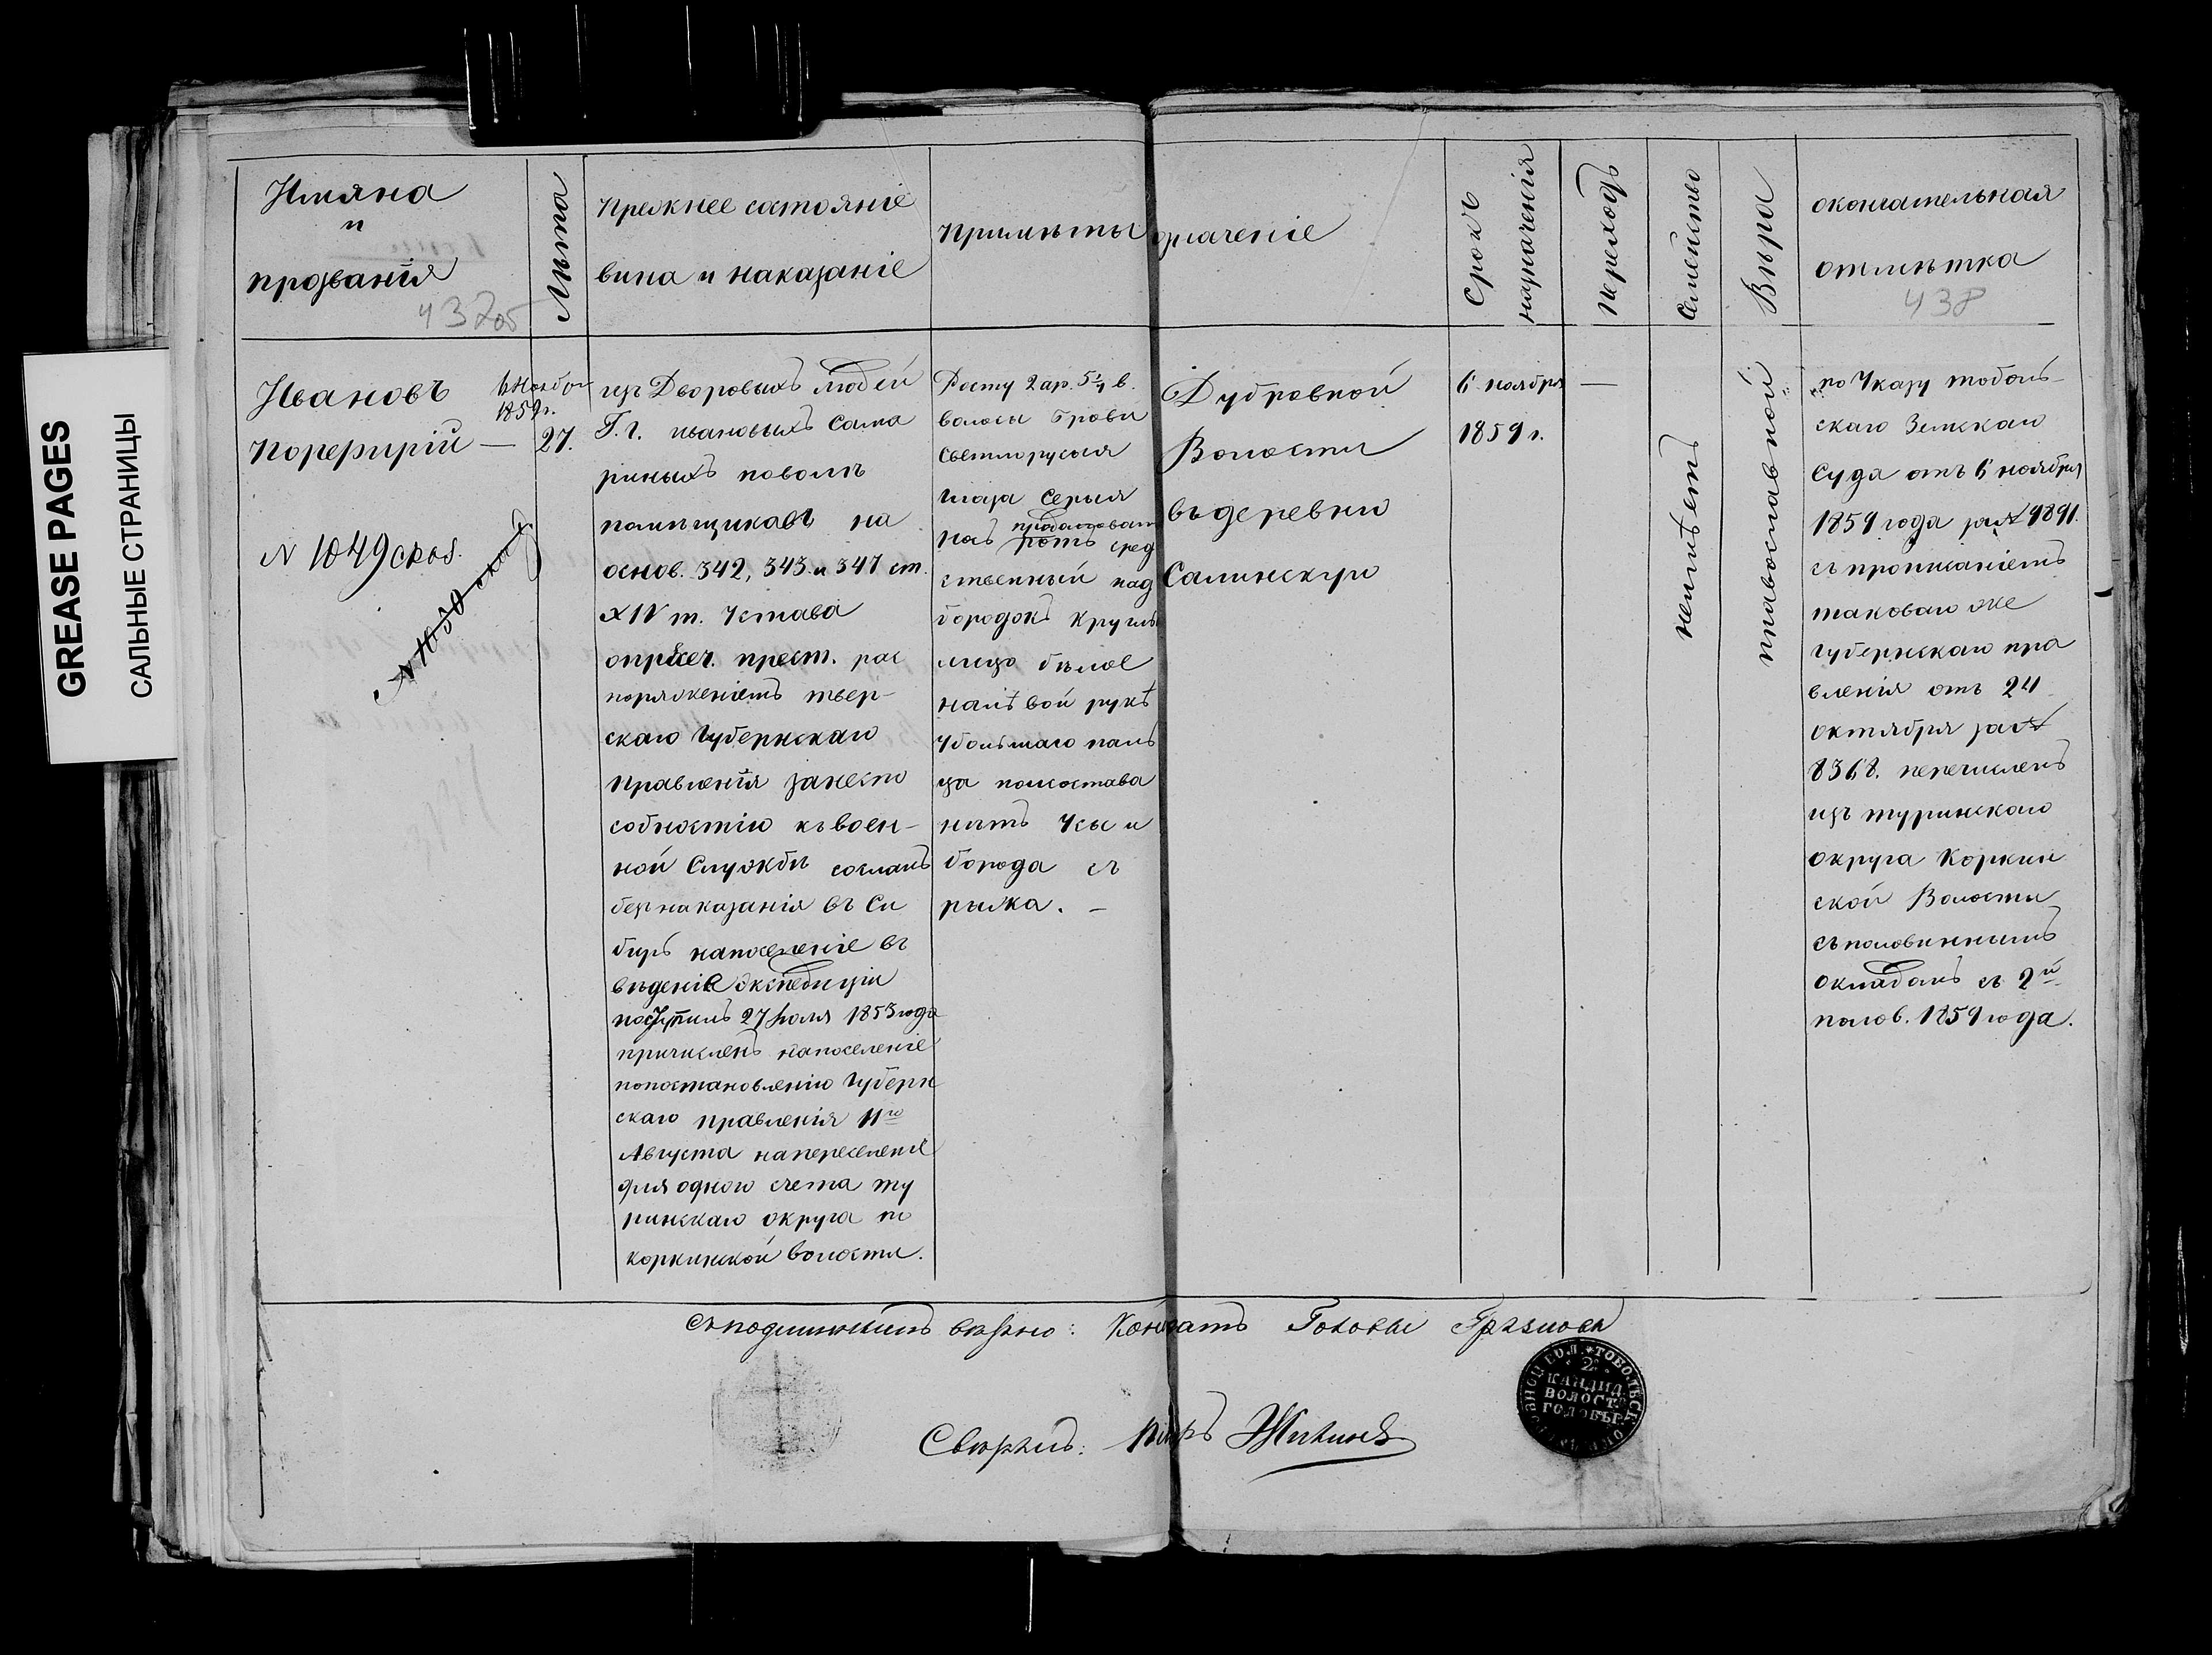 GREASE PAGES
САЛЬНЫЕ СТРАНИЦЫ
Имяна
и
прозванія
437об
Лѣта
Прежнее состояніе
вина и наказаніе
Примѣты
Срокъ
назначенія
Переходъ
Семейство
Вѣра
окончательная
отмѣтка
438
Ивановъ
Порфирій —
6 Ноября
1859 г.
27.
N 1049 сказ.
изъ Дворовыхъ людей
Г.г. ивановыхъ Сама
риныхъ поволѣ
помѣщиковъ на
основ. 342, 343 и 347 ст.
XIV т. Устава
опресеч. прест. рас
поряженіемъ твер-
скаго Губернскаго
Правленія занеспо
собностію къ воен-
ной Службѣ сосланъ
безнаказанія въ Си
бирь напоселеніе въ
вѣденіе Экспедиціи
поступилъ 27 Іюля 1853 года
причисленъ напоселеніе
попостановленію Губерн
скаго правленія 11го
Августа напереселеніе
для одного счета ту
ринскаго округа по
коркинской волости.
Росту 2 ар. 5 1/4 в.
волосы брови
светлорусыя
глаза Серыя
носъ продолговатъ
ротъ сред
ственный под
бородокъ круглъ
лицо бѣлое
налѣвой рукѣ
Убольшаго паль
ца
Усы и
борода съ
рыжа. —
Дубровной
Волости
въ деревню
Салинскую
6 ноября
1859 г.
—
неимѣетъ
православной
по Указу тоболь-
скаго Земскаго
Суда отъ 6 ноября
1859 года за N 9891.
съ прописаніемъ
таковаго же
губернскаго пра
вленія отъ 24
октября за N
8368. перечисленъ
изъ туринскаго
округа Коркин
ской Волости
съ половиннымъ
окладомъ съ 2й
полов. 1859 года.
Съподлиннымъ вѣрно:
Головы
Сверялъ:
ТОБОЛЬСК. ОКР.
2
КАНДИД.
ВОЛОСТ.
ГОЛОВЫ